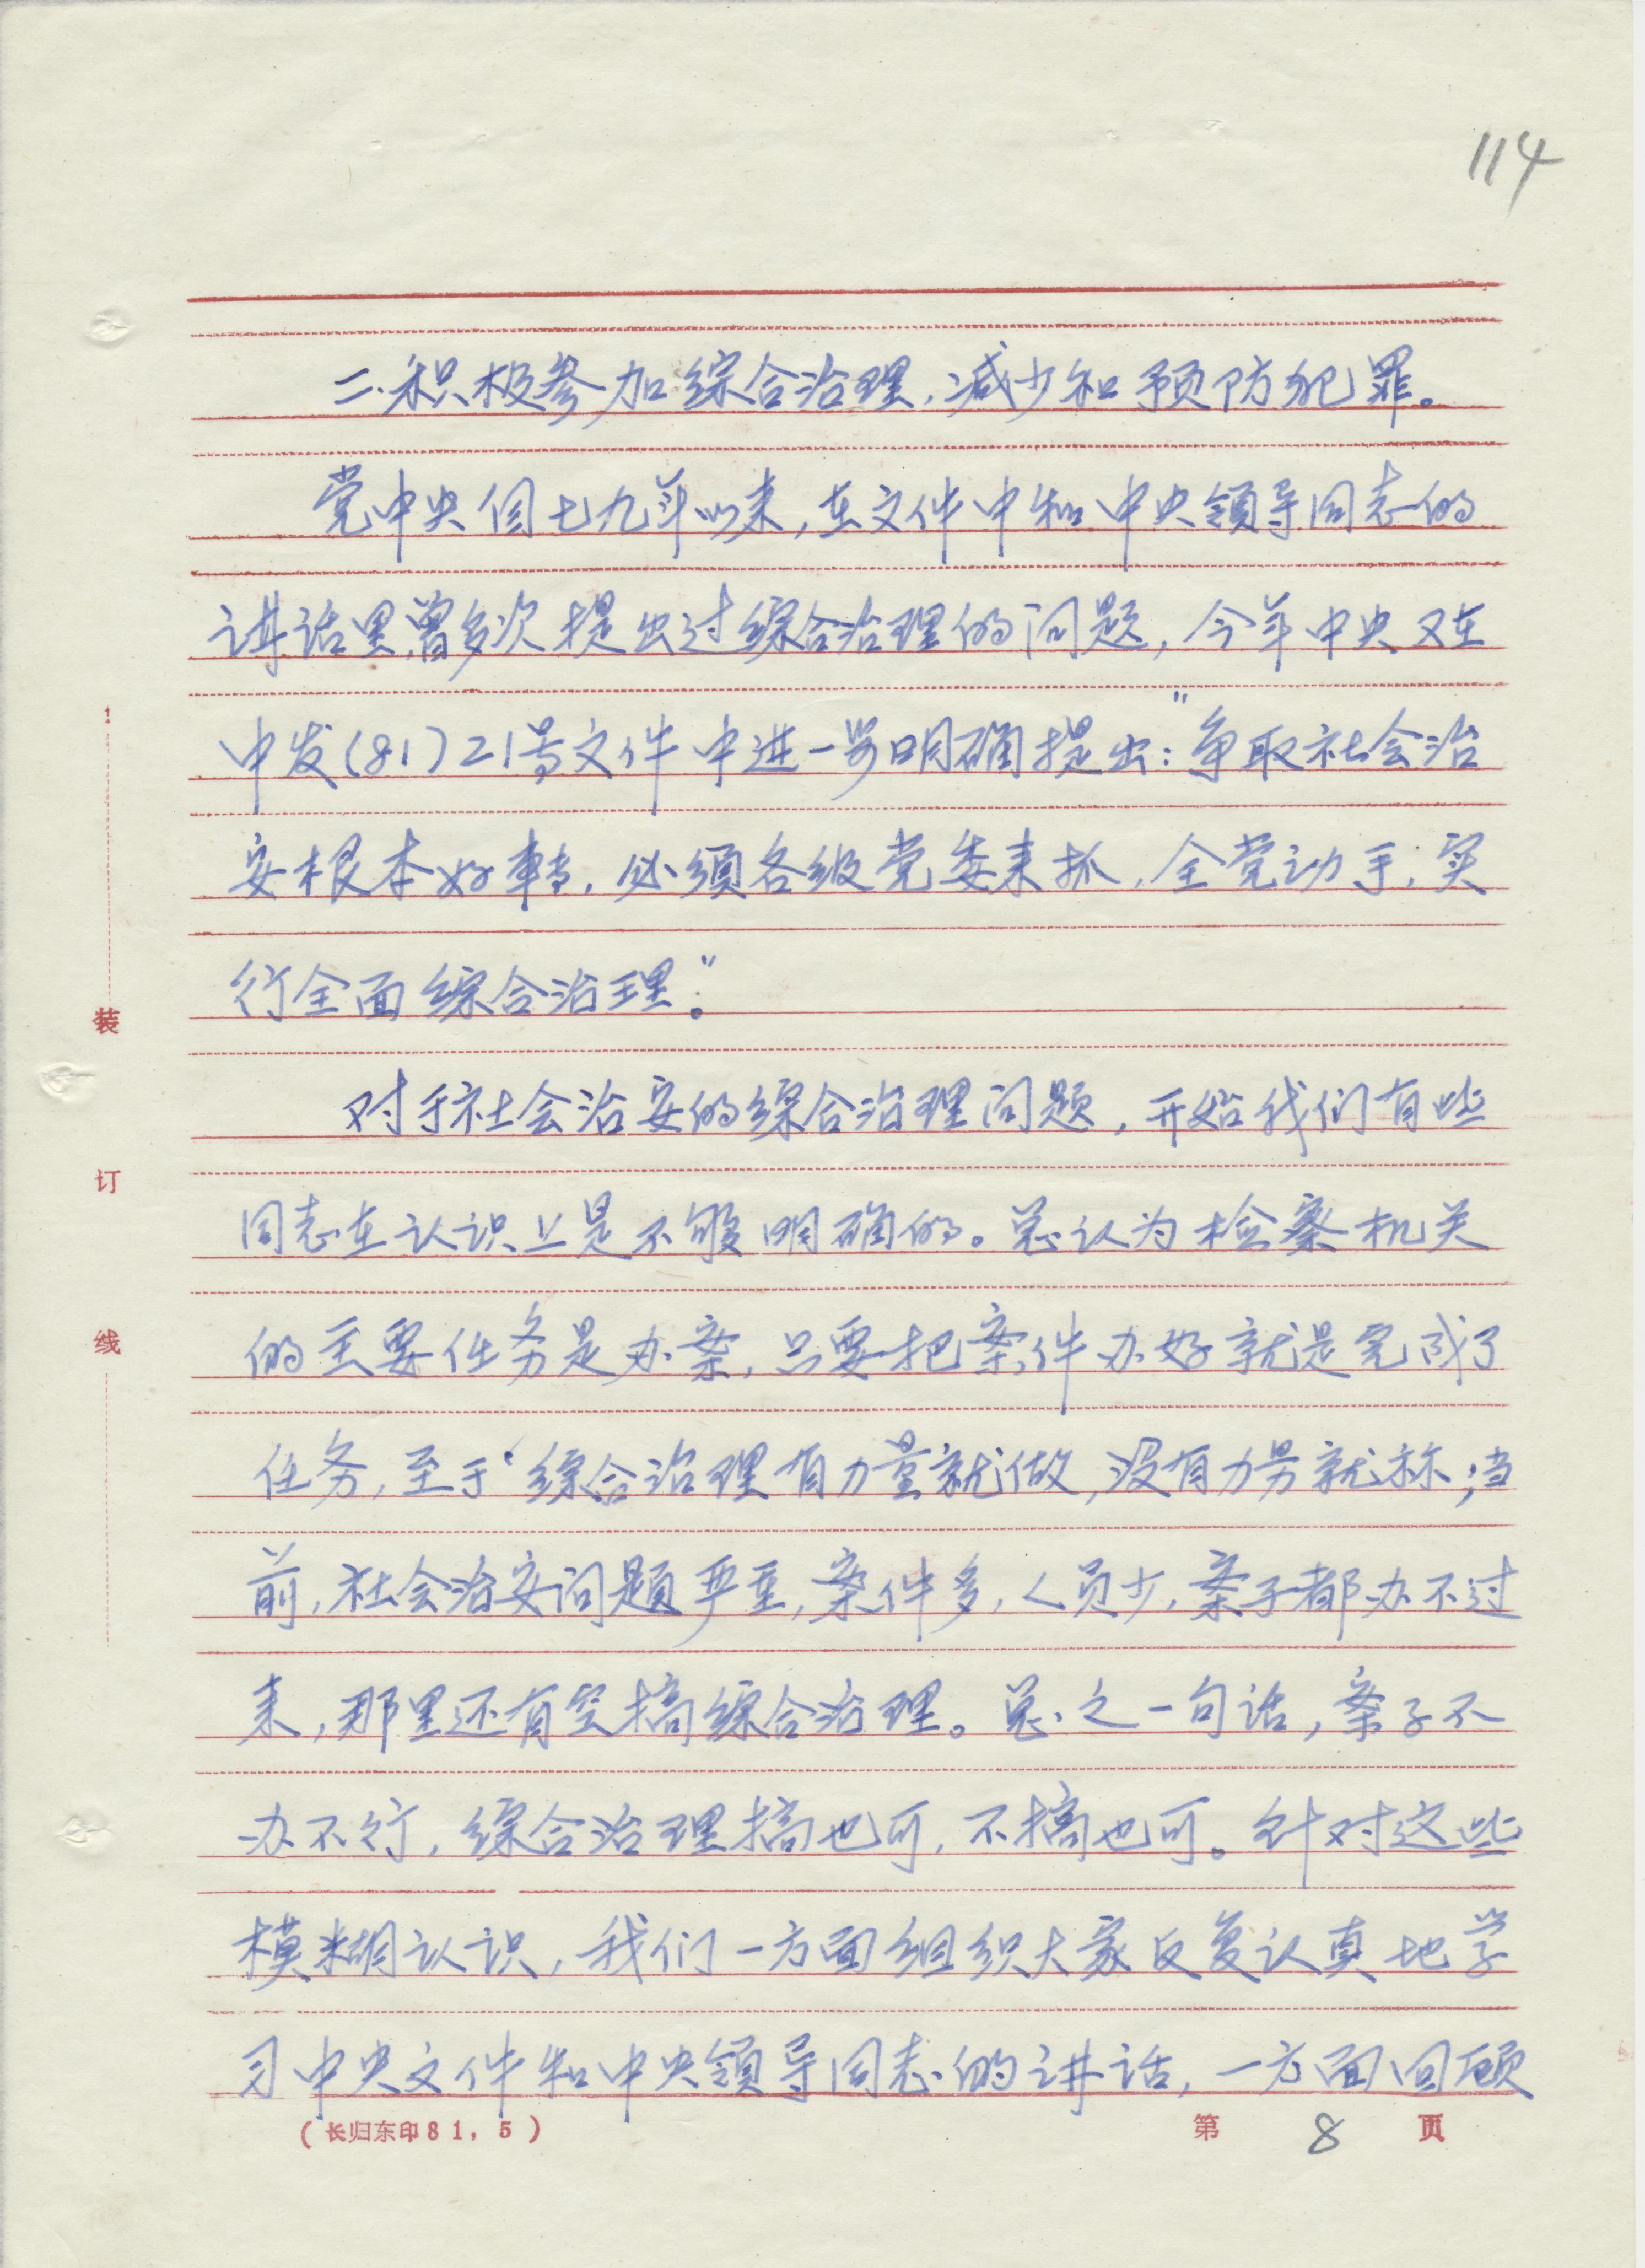 114
二.积极参加综合治理,减少和预防犯罪。
党中央自七九年以来,在文件中和中央领导同志的
讲话里,曾多次提出过综合治理的问题,今年中央又在
中发(81)21号文件中进一步明确提出:“争取社会治
安根本好转,必须各级党委来抓,全党动手,实
行全面综合治理。”
对于社会治安的综合治理问题,开始我们有些
同志在认识上是不够明确的。总认为检察机关
的主要任务是办案,只要把案件办好就是完成了
任务,至于综合治理有力量就做,没有力量就;当
前,社会治安问题严重,案件多,人员少,案子都办不过
来,那里还有空搞综合治理。总之一句话,案子不
办不行,综合治理搞也可,不搞也可。针对这些
模糊认识,我们一方面组织大家反复认真地学
习中央文件和中央领导同志的讲话,一方面回顾
装
订
线
(长归东印81,5)
第 8 页